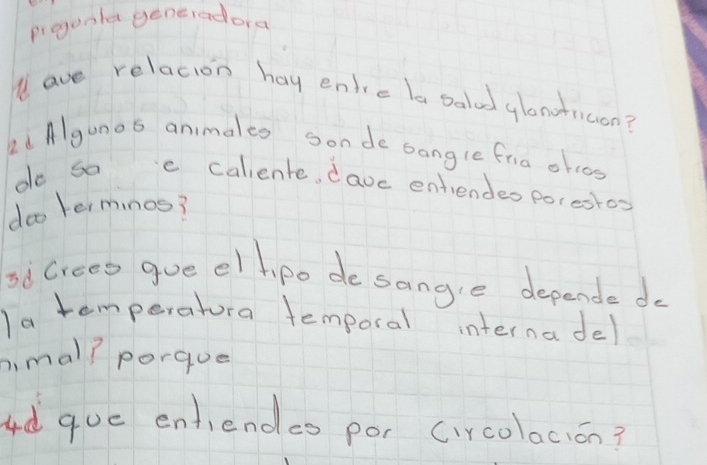 pregunta generadora
1¿ que relación hay entre la salud y la nutricion?
2¿ Algunos animales son de sangre fria otros
de sa e caliente. ¿que entiendes por estos
dos terminos?
3¿ Crees que el tipo de sangre depende de
la temperatura temporal interna del
nimal? porque
4¿ que entiendes por circolación?